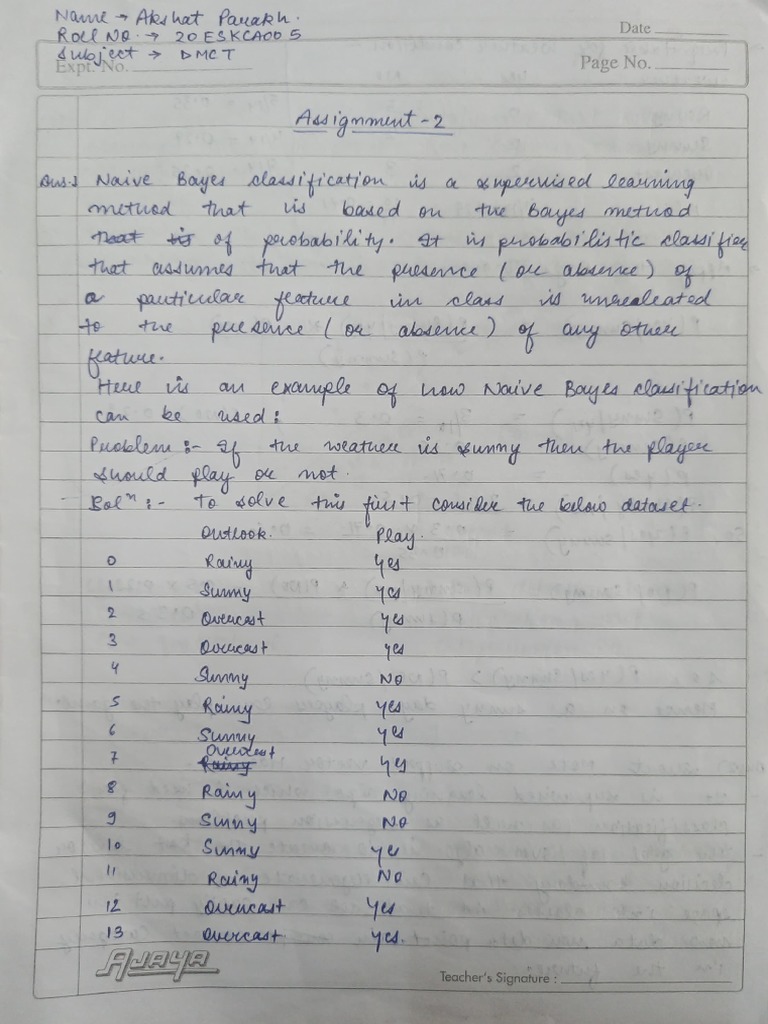 Name → Akshat Parakh.
Roll No. → 20ESKCA005
Subject → DMCT
Date
Expt. No.
Page No.
Assignment - 2
Ans:1 Naive Bayes classification is a supervised learning
method that is based on the Bayes method
that is of probability. It is probabilistic classifier
that assumes that the presence (or absence) of
a particular feature in class is unrealeated
to the presence (or absence) of any other
feature.
Here is an example of how Naive Bayes classification
can be used:
Problem :- If the weather is sunny then the player
should play or not.
Solⁿ :- To solve this first consider the below dataset.
Outlook. Play.
0 Rainy Yes
1 Sunny Yes
2 Overcast Yes
3 Overcast Yes
4 Sunny No
5 Rainy Yes
6 Sunny Yes
7 Rainy Overcast Yes
8 Rainy No
9 Sunny No
10 Sunny Yes
11 Rainy No
12 Overcast Yes
13 Overcast Yes.
AJAYA
Teacher's Signature :